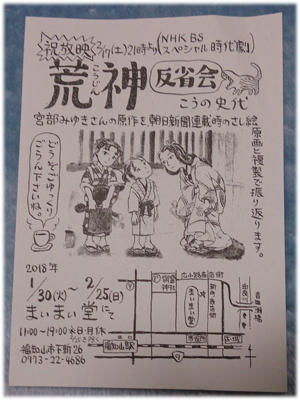 祝放映
2/17(土)21時から
(NHK BS
スペシャル時代劇)
こうじん
荒神
反省会
こうの史代
宮部みゆきさんの原作を、朝日新聞連載時のさし絵
原画と複製で振り返ります。
どうぞごゆっくり
ごらん下さいね。
2018年
1/30(火)〜2/25(日)
まいまい堂にて
11:00〜19:00 水日・月休
福知山市下新26
0973-22-4686
御霊
神社
広小路商店街
まいまい堂
新町商店街
福知山駅
由良川